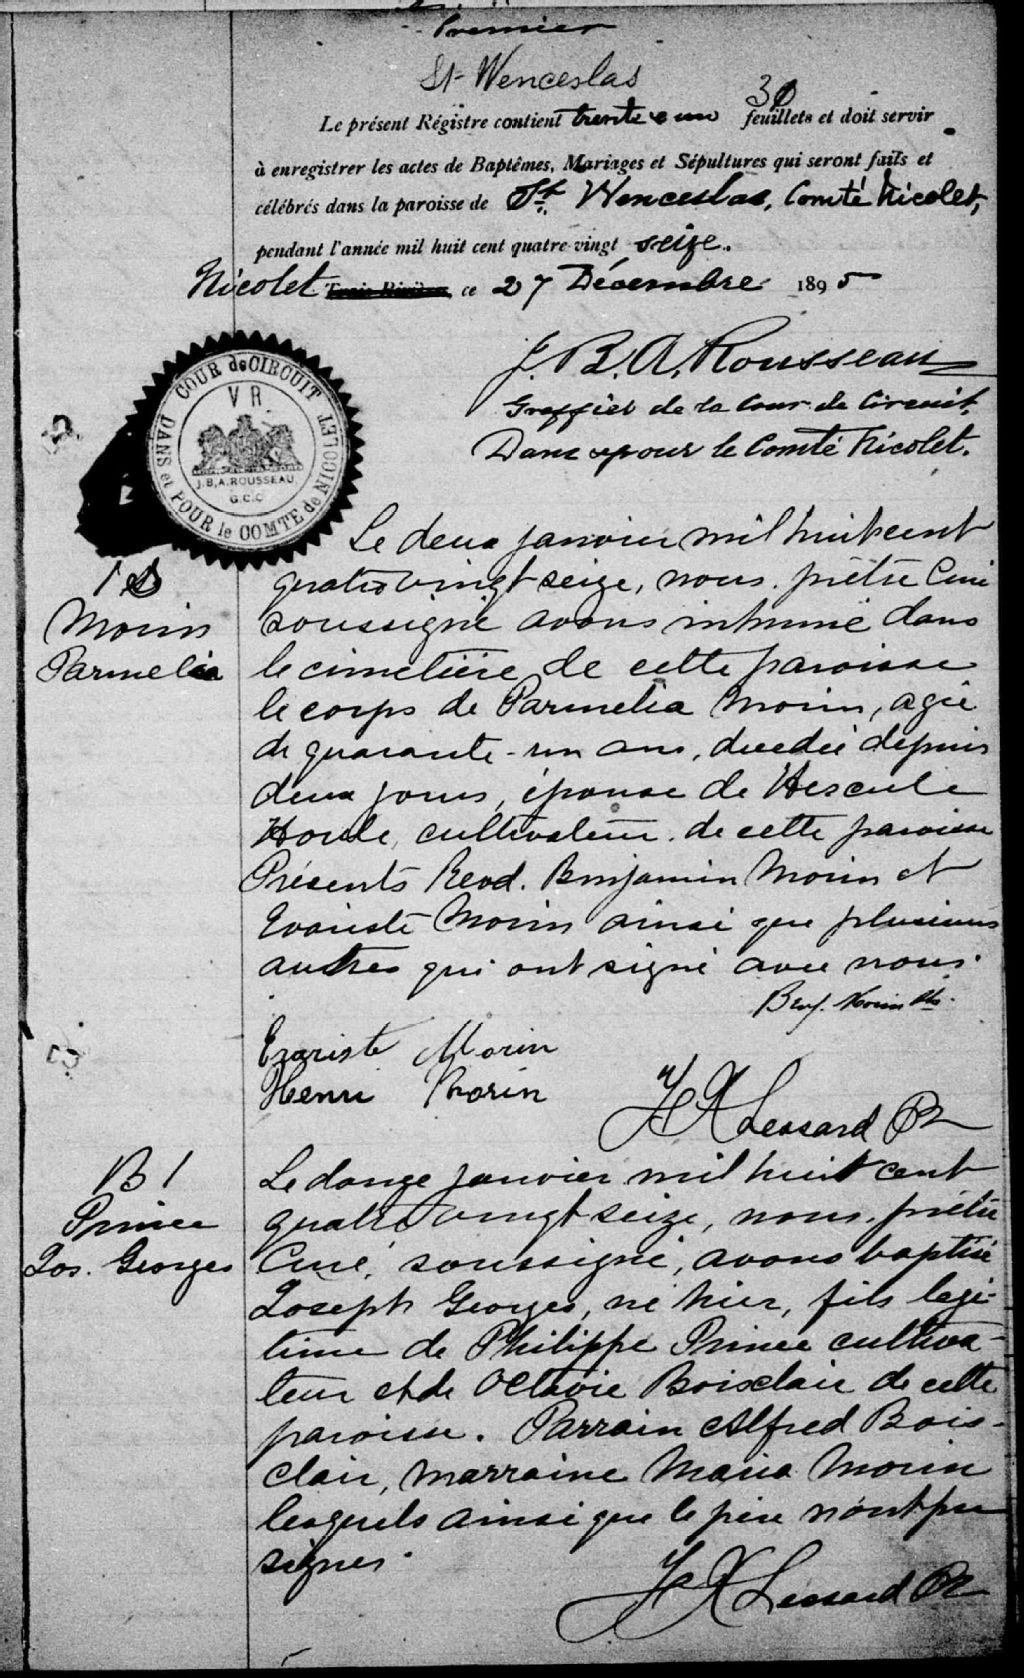 Premier
St Wenceslas
30
Le présent Régistre contient trente e un feuillets et doit servir
à enregistrer les actes de Baptêmes, Mariages et Sépultures qui seront faits et
célébrés dans la paroisse de St. Wenceslas, Comté Nicolet,
pendant l'année mil huit cent quatre-vingt seize.
Nicolet Trois-Rivières, ce 27 Décembre 1895
J. B. A. Rousseau
Greffier de la Cour de Circuit,
Dans et pour le Comté Nicolet.
COUR de CIRCUIT
DANS et POUR le COMTE de NICOLET
V R
J.B,A.ROUSSEAU
G.C.C
Le deux janvier mil huit cent
quatre vingt seize, nous, prêtre Curé
soussigné avons inhumé dans
le cimetière de cette paroisse
le corps de Parmelia Morin, agée
de quarante-un ans, décedée depuis
deux jours, épouse de Hercule
Houle, cultivateur de cette paroisse
Présents Revd. Benjamin Morin et
Evariste Morin ainsi que plusieurs
autres qui ont signé avec nous.
S 1
Morin
Parmelia
Benj. Morin Ptre.
Evariste Morin
Henri Morin
F X Lessard Ptr
B 1
Prince
Jos. Georges
Le douze janvier mil huit cent
quatre vingt seize, nous, prêtre
Curé, soussigné, avons baptisé
Joseph Georges, né hier, fils légi-
time de Philippe Prince cultiva-
teur et de Octavie Boisclair de cette
paroisse. Parrain Alfred Bois-
clair, marraine Maria Morin
lesquels ainsi que le père n'ont pu
signer.
F X Lessard Ptr